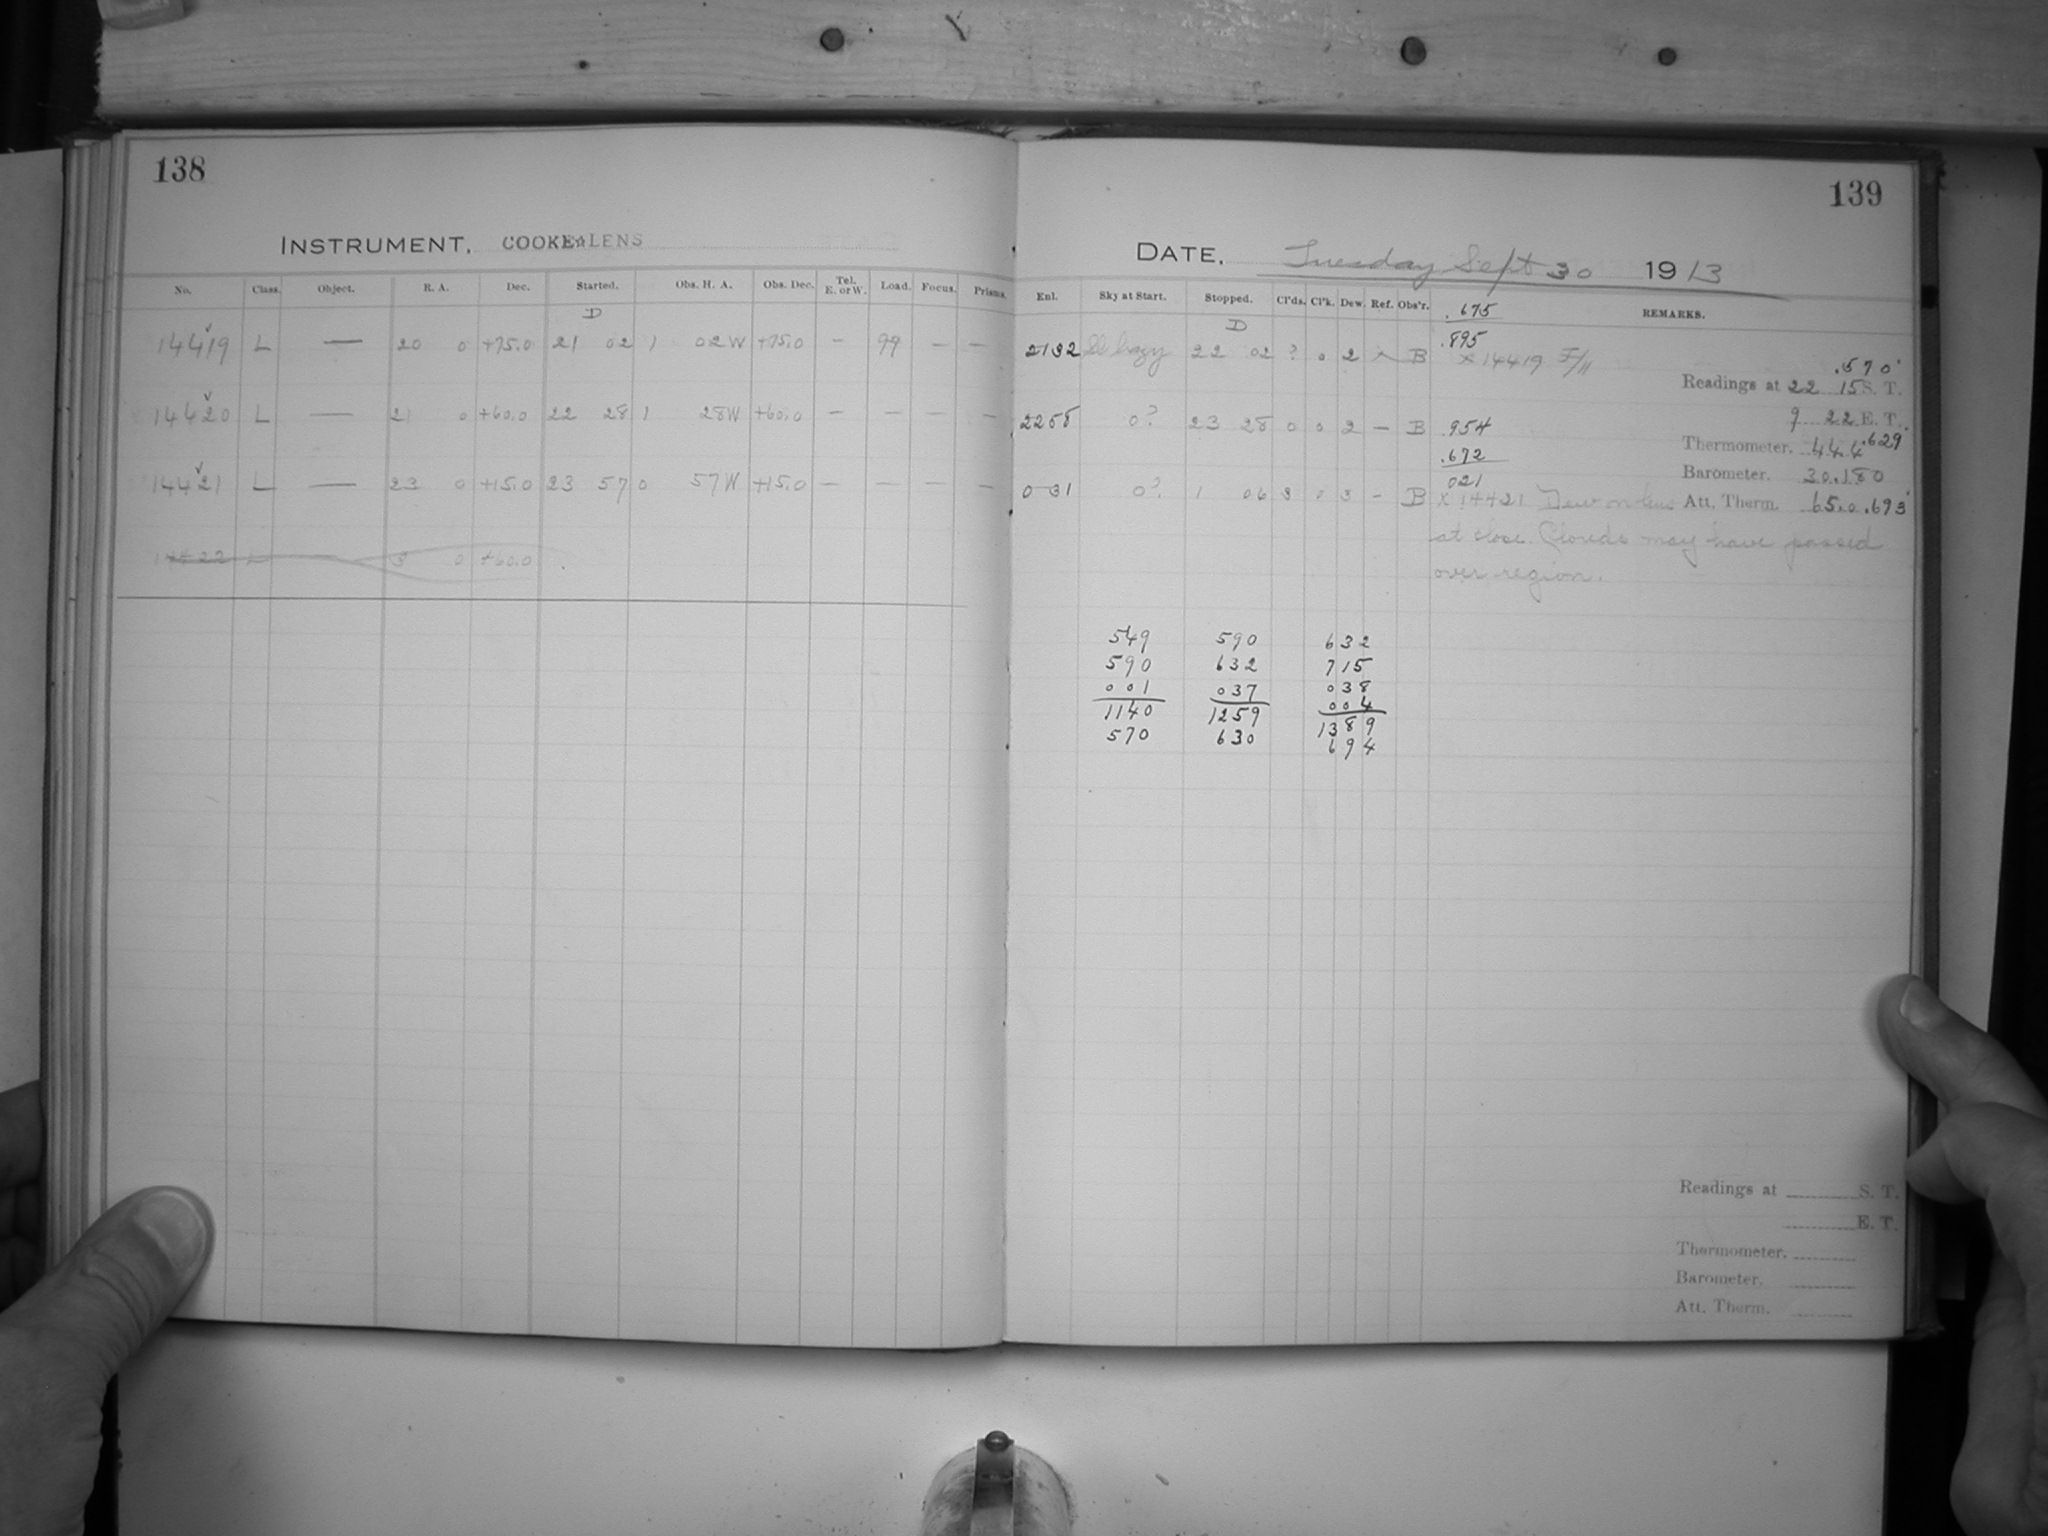 138
INSTRUMENT, COOKE☆LENS
No. Class. Object. R. A. Dec. Started. Obs. H. A. Obs. Dec. Tel. E. or W. Load. Focus. Prisms.
D
14419 L — 20 0 +75.0 21 02 1 02W +75.0 — 99 — —
14420 L — 21 0 +60.0 22 28 1 28W +60.0 — — — —
14421 L — 23 0 +15.0 23 57 0 57W +15.0 — — — —
14422 L — 3 0 +60.0
139
DATE, Tuesday Sept 30 1913
Enl. Sky at Start. Stopped. Cl'ds. Cl'k. Dew. Ref. Obs'r. REMARKS.
.675
D
.895
2132 Sl hazy 22 02 ? 0 2 B x 14419 F/11
.570
Readings at 22 15 S. T.
9 22 E. T.
2258 0? 23 28 0 0 2 — B .954
Thermometer. 44.4 .629
.672
Barometer. 30.180
021
0 31 0? 1 06 3 0 3 — B x 14421 Dew on lens
Att. Therm. 65.0 .693
at close. Clouds may have passed
over region.
549 590 632
590 632 715
001 037 038
004
1140 1259 1389
570 630 694
Readings at S. T.
E. T.
Thermometer.
Barometer.
Att. Therm.